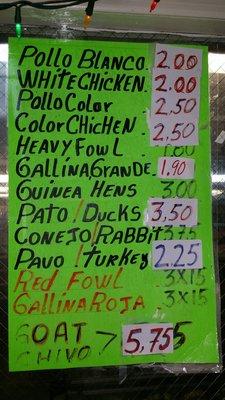 Pollo Blanco 2.00
WHITE CHICKEN. 2.00
Pollo Color 2,50
Color CHICHEN. 2,50
HEAVY FOWL
GALLINA GRANDE. 1.90
GUINEA HENS 3.00
PATO / Ducks 3,50
CONEJO / RABBIT 3.75
PAVO / turkey 2.25
RED FOWL .3X15
GALLINA ROJA .3X15
GOAT
CHIVO > 5,75